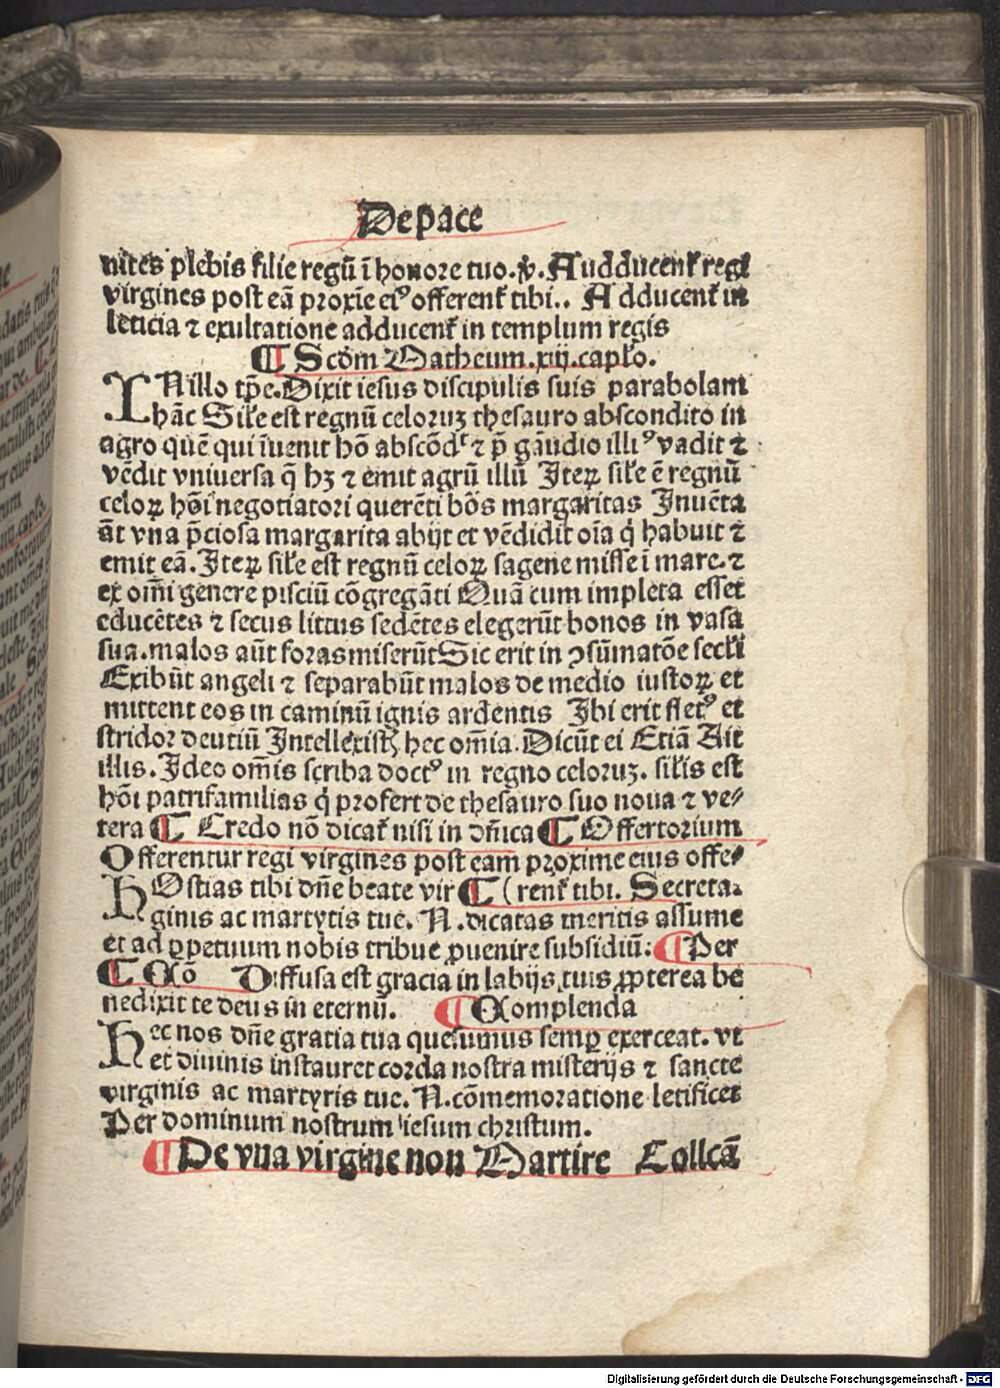 De pace
nites plebis filie regū ī honore tuo.℣. Audducent̄ regi
virgines post eā proxīe ei⁹ offerent̄ tibi.. Adducent̄ in
leticia ⁊ exultatione adducent̄ in templum regis
¶ Scōm Matheum.xiij.capło.
IN illo tp̄e.Dixit iesus discipulis suis parabolam
hāc Sil̄e est regnū celoruꝫ thesauro abscondito in
agro quē qui īuenit hō abscōdᵗ ⁊ p̄ gāudio illi⁹ vadit ⁊
vēdit vniuersa q̄ hꝫ ⁊ emit agrū illū Iteꝝ sil̄e ē regnū
celoꝝ hōi negotiatori querēti bōs margaritas Inuēta
āt vna p̄ciosa margarita abijt et vēdidit oīa q̄ habuit ⁊
emit eā. Iteꝝ sil̄e est regnū celoꝝ sagene misse ī mare. ⁊
ex om̄i genere pisciū cōgregāti Quā cum impleta esset
educētes ⁊ secus littus sedētes elegerūt bonos in vasa
sua.malos aūt foras miserūt Sic erit in ꝯsūmatōe secl̄i
Exibūt angeli ⁊ separabūt malos de medio iustoꝝ et
mittent eos in caminū ignis ardentis Ibi erit flet⁹ et
stridor dentiū Intellexistꝭ hec om̄ia.Dicūt ei Etiā Ait
illis. Ideo om̄is scriba doct⁹ in regno celoruꝫ. sil̄is est
hōi patrifamilias q̄ profert de thesauro suo noua ⁊ ve⸗
tera ¶ Credo nō dicat̄ nisi in dn̄ica ¶ Offertorium
Offerentur regi virgines post eam proxime eius offe⸗
HOstias tibi dn̄e beate vir ¶ (rent̄ tibi. Secreta.
ginis ac martyris tue. N. dicatas meritis assume
et ad ꝑpetuum nobis tribue ꝓuenire subsidiū: ¶ Per
¶ Cō Diffusa est gracia in labijs tuis ꝓpterea be
nedixit te deus in eternū. ¶ Complenda
Hec nos dn̄e gratia tua quesumus semꝑ exerceat. vt
et diuinis instauret corda nostra misterijs ⁊ sancte
virginis ac martyris tue. N. cōmemoratione letificet
Per dominum nostrum iesum christum.
¶ De vna virgine non Martire Collcā
Digitalisierung gefördert durch die Deutsche Forschungsgemeinschaft - DFG